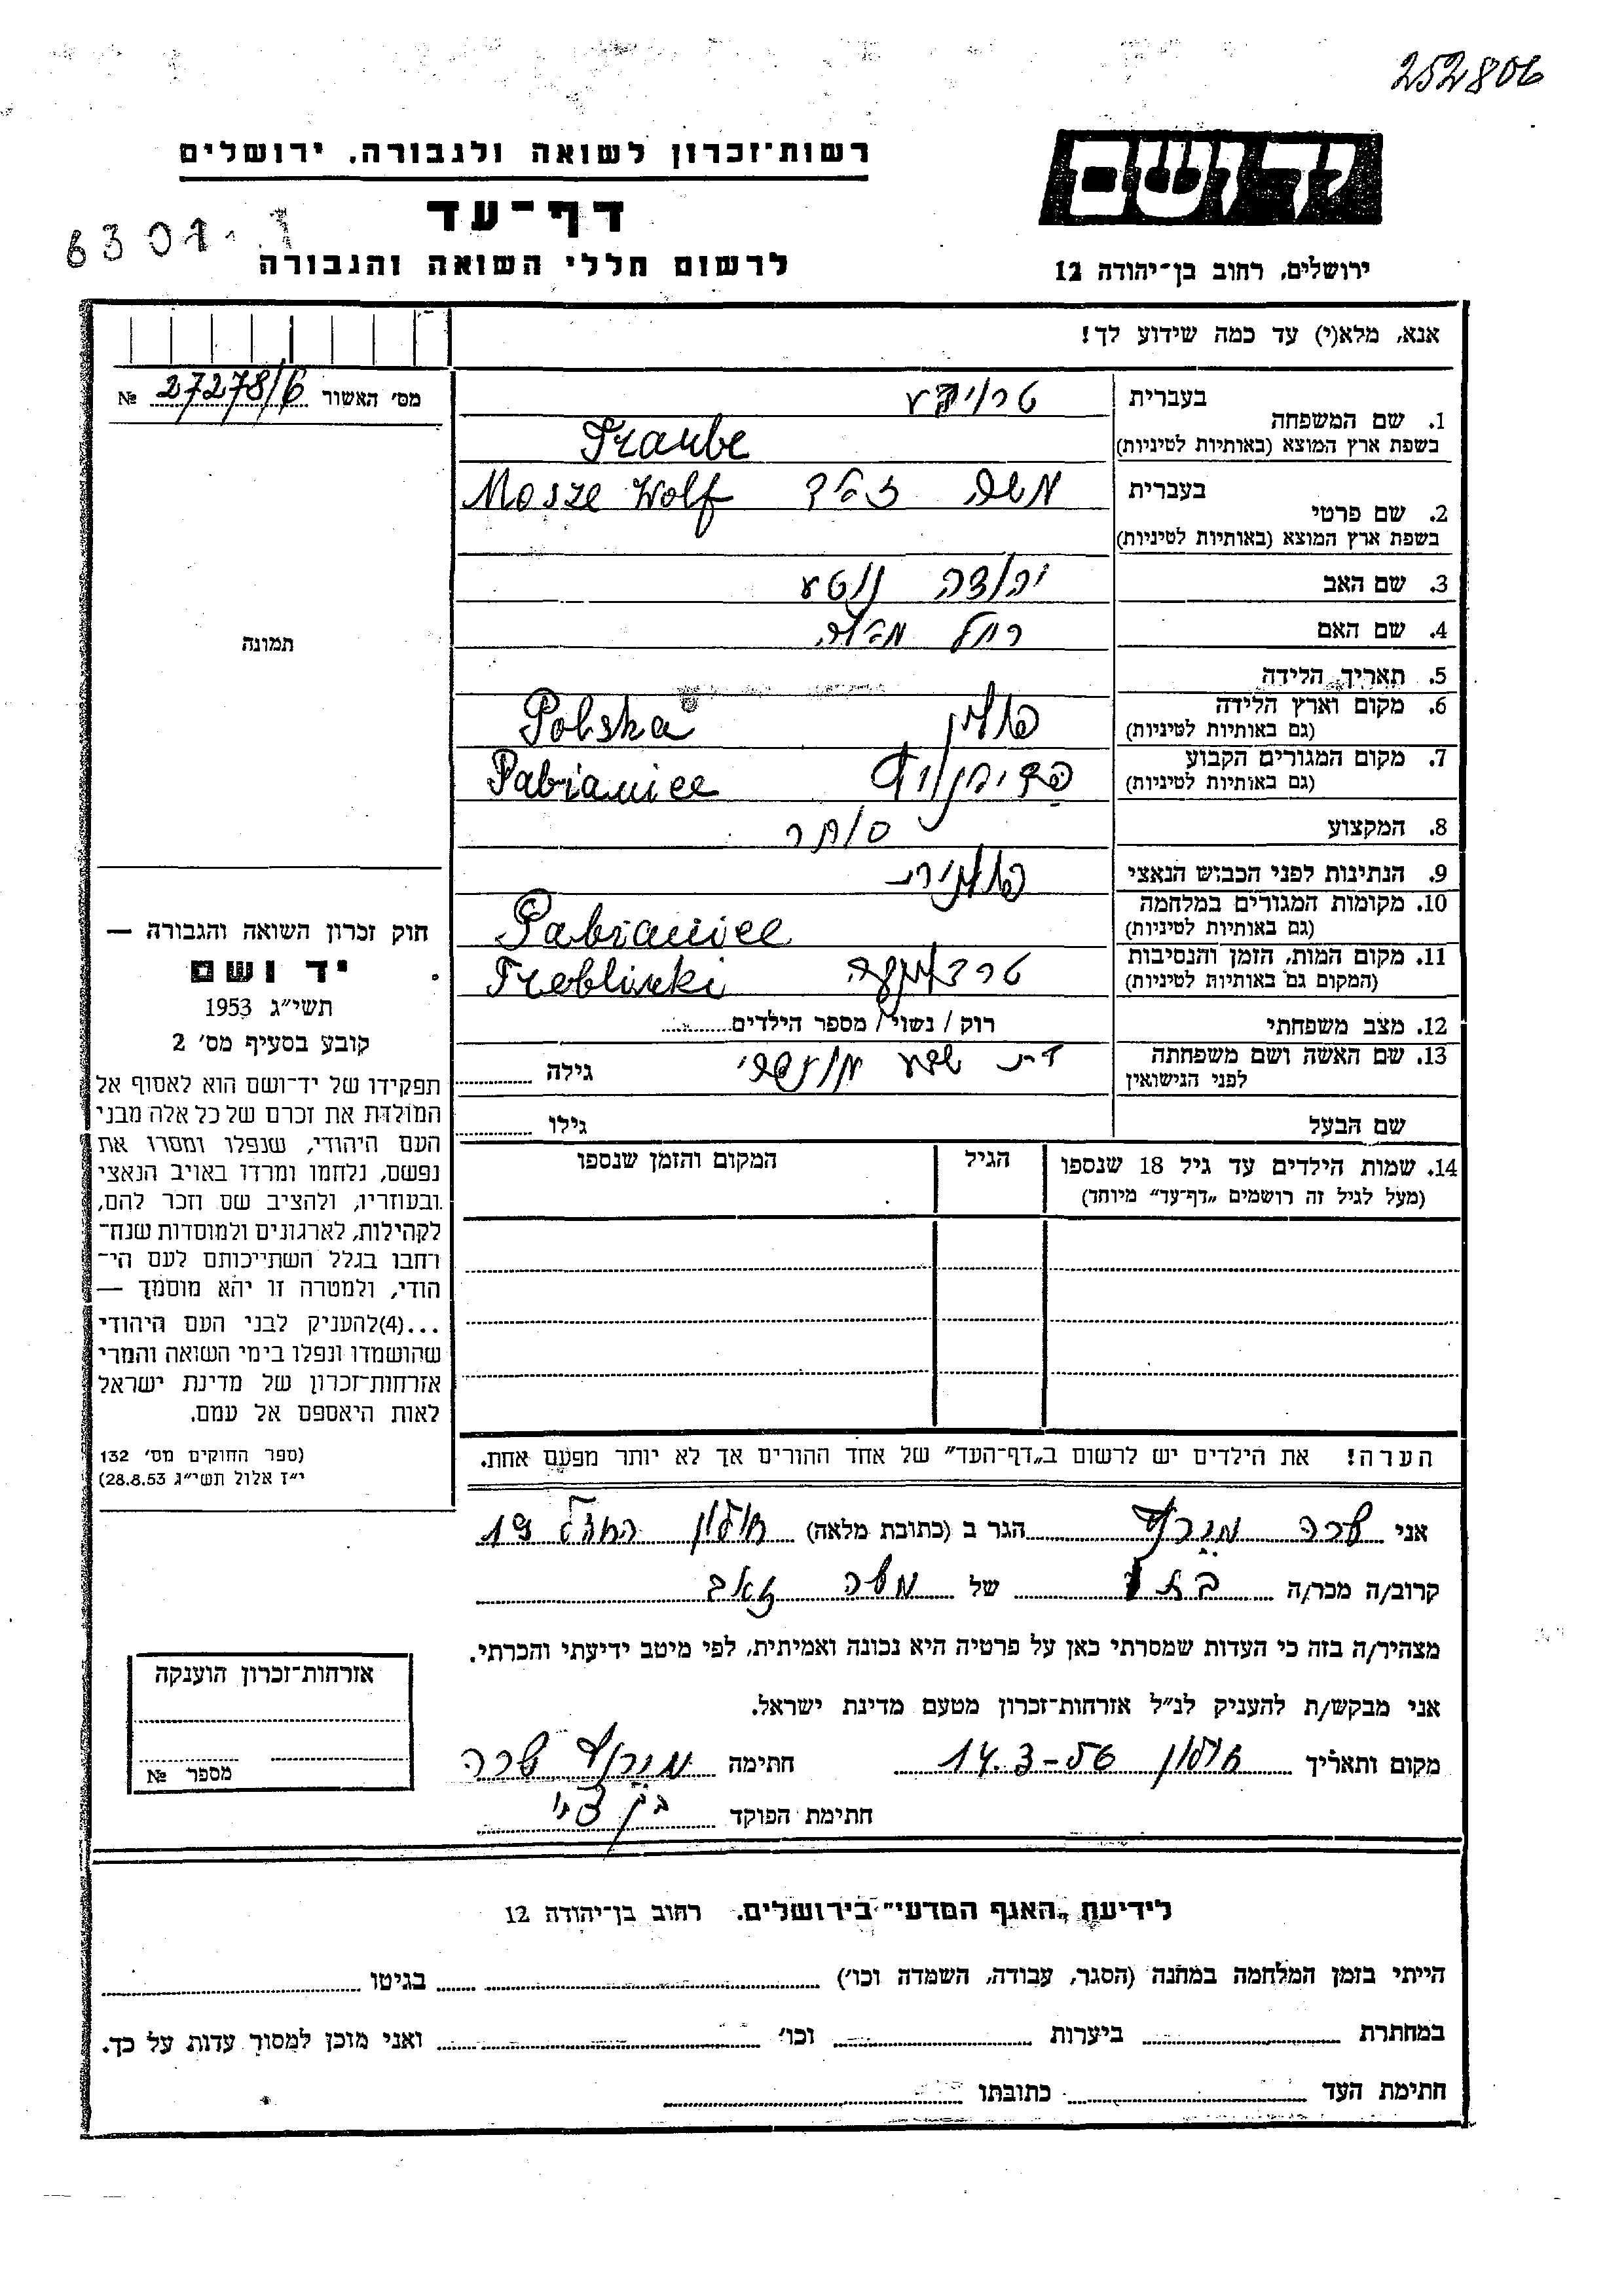 252806
יד ושם
רשות־זכרון לשואה ולגבורה. ירושלים
דף־עד
6301
לרשום חללי השואה והגבורה
ירושלים, רחוב בן־יהודה 12
אנא, מלא(י) עד כמה שידוע לך!
מס׳ האשור 27278/6 №
בעברית
1. שם המשפחה
בשפת ארץ המוצא (באותיות לטיניות)
Traube
בעברית משה
Mosze Wolf
2. שם פרטי
בשפת ארץ המוצא (באותיות לטיניות)
3. שם האב יהודה נוטע
4. שם האם רחל
תמונה
5. תאריך הלידה
6. מקום וארץ הלידה פולין Polska
(גם באותיות לטיניות)
7. מקום המגורים הקבוע Pabianice
(גם באותיות לטיניות)
8. המקצוע סוחר
9. הנתינות לפני הכבוש הנאצי פולנית
10. מקומות המגורים במלחמה Pabianice
(גם באותיות לטיניות)
11. מקום המות, הזמן והנסיבות Treblinki
(המקום גם באותיות לטיניות)
12. מצב משפחתי רוק / נשוי / מספר הילדים
13. שם האשה ושם משפחתה גילה
לפני הנישואין
שם הבעל גילו
14. שמות הילדים עד גיל 18 שנספו הגיל המקום והזמן שנספו
(מעל לגיל זה רושמים „דף־עד״ מיוחד)
הערה! את הילדים יש לרשום ב„דף־העד״ של אחד ההורים אך לא יותר מפעם אחת.
חוק זכרון השואה והגבורה —
יד ושם
תשי״ג 1953
קובע בסעיף מס׳ 2
תפקידו של יד־ושם הוא לאסוף אל
המולדת את זכרם של כל אלה מבני
העם היהודי, שנפלו ומסרו את
נפשם, נלחמו ומרדו באויב הנאצי
ובעוזריו, ולהציב שם וזכר להם,
לקהילות, לארגונים ולמוסדות שנח־
רחבו בגלל השתייכותם לעם הי־
הודי, ולמטרה זו יהא מוסמך —
...(4)להעניק לבני העם היהודי
שהושמדו ונפלו בימי השואה והמרי
אזרחות־זכרון של מדינת ישראל
לאות היאספם אל עמם.
(ספר החוקים מס׳ 132
י״ז אלול תשי״ג 28.8.53)
אני שרה הגר ב (כתובת מלאה) חולון 19
קרוב/ה מכר/ה בתו של משה זאב
מצהיר/ה בזה כי העדות שמסרתי כאן על פרטיה היא נכונה ואמיתית, לפי מיטב ידיעתי והכרתי.
אני מבקש/ת להעניק לנ״ל אזרחות־זכרון מטעם מדינת ישראל.
מקום ותאריך חולון 14.3-56 חתימה שרה
חתימת הפוקד
אזרחות־זכרון הוענקה
מספר №
לידיעת „האגף המדעי״ בירושלים. רחוב בן־יהודה 12
הייתי בזמן המלחמה במחנה (הסגר, עבודה, השמדה וכו׳) בגיטו
במחתרת ביערות וכו׳ ואני מוכן למסור עדות על כך.
חתימת העד כתובתו